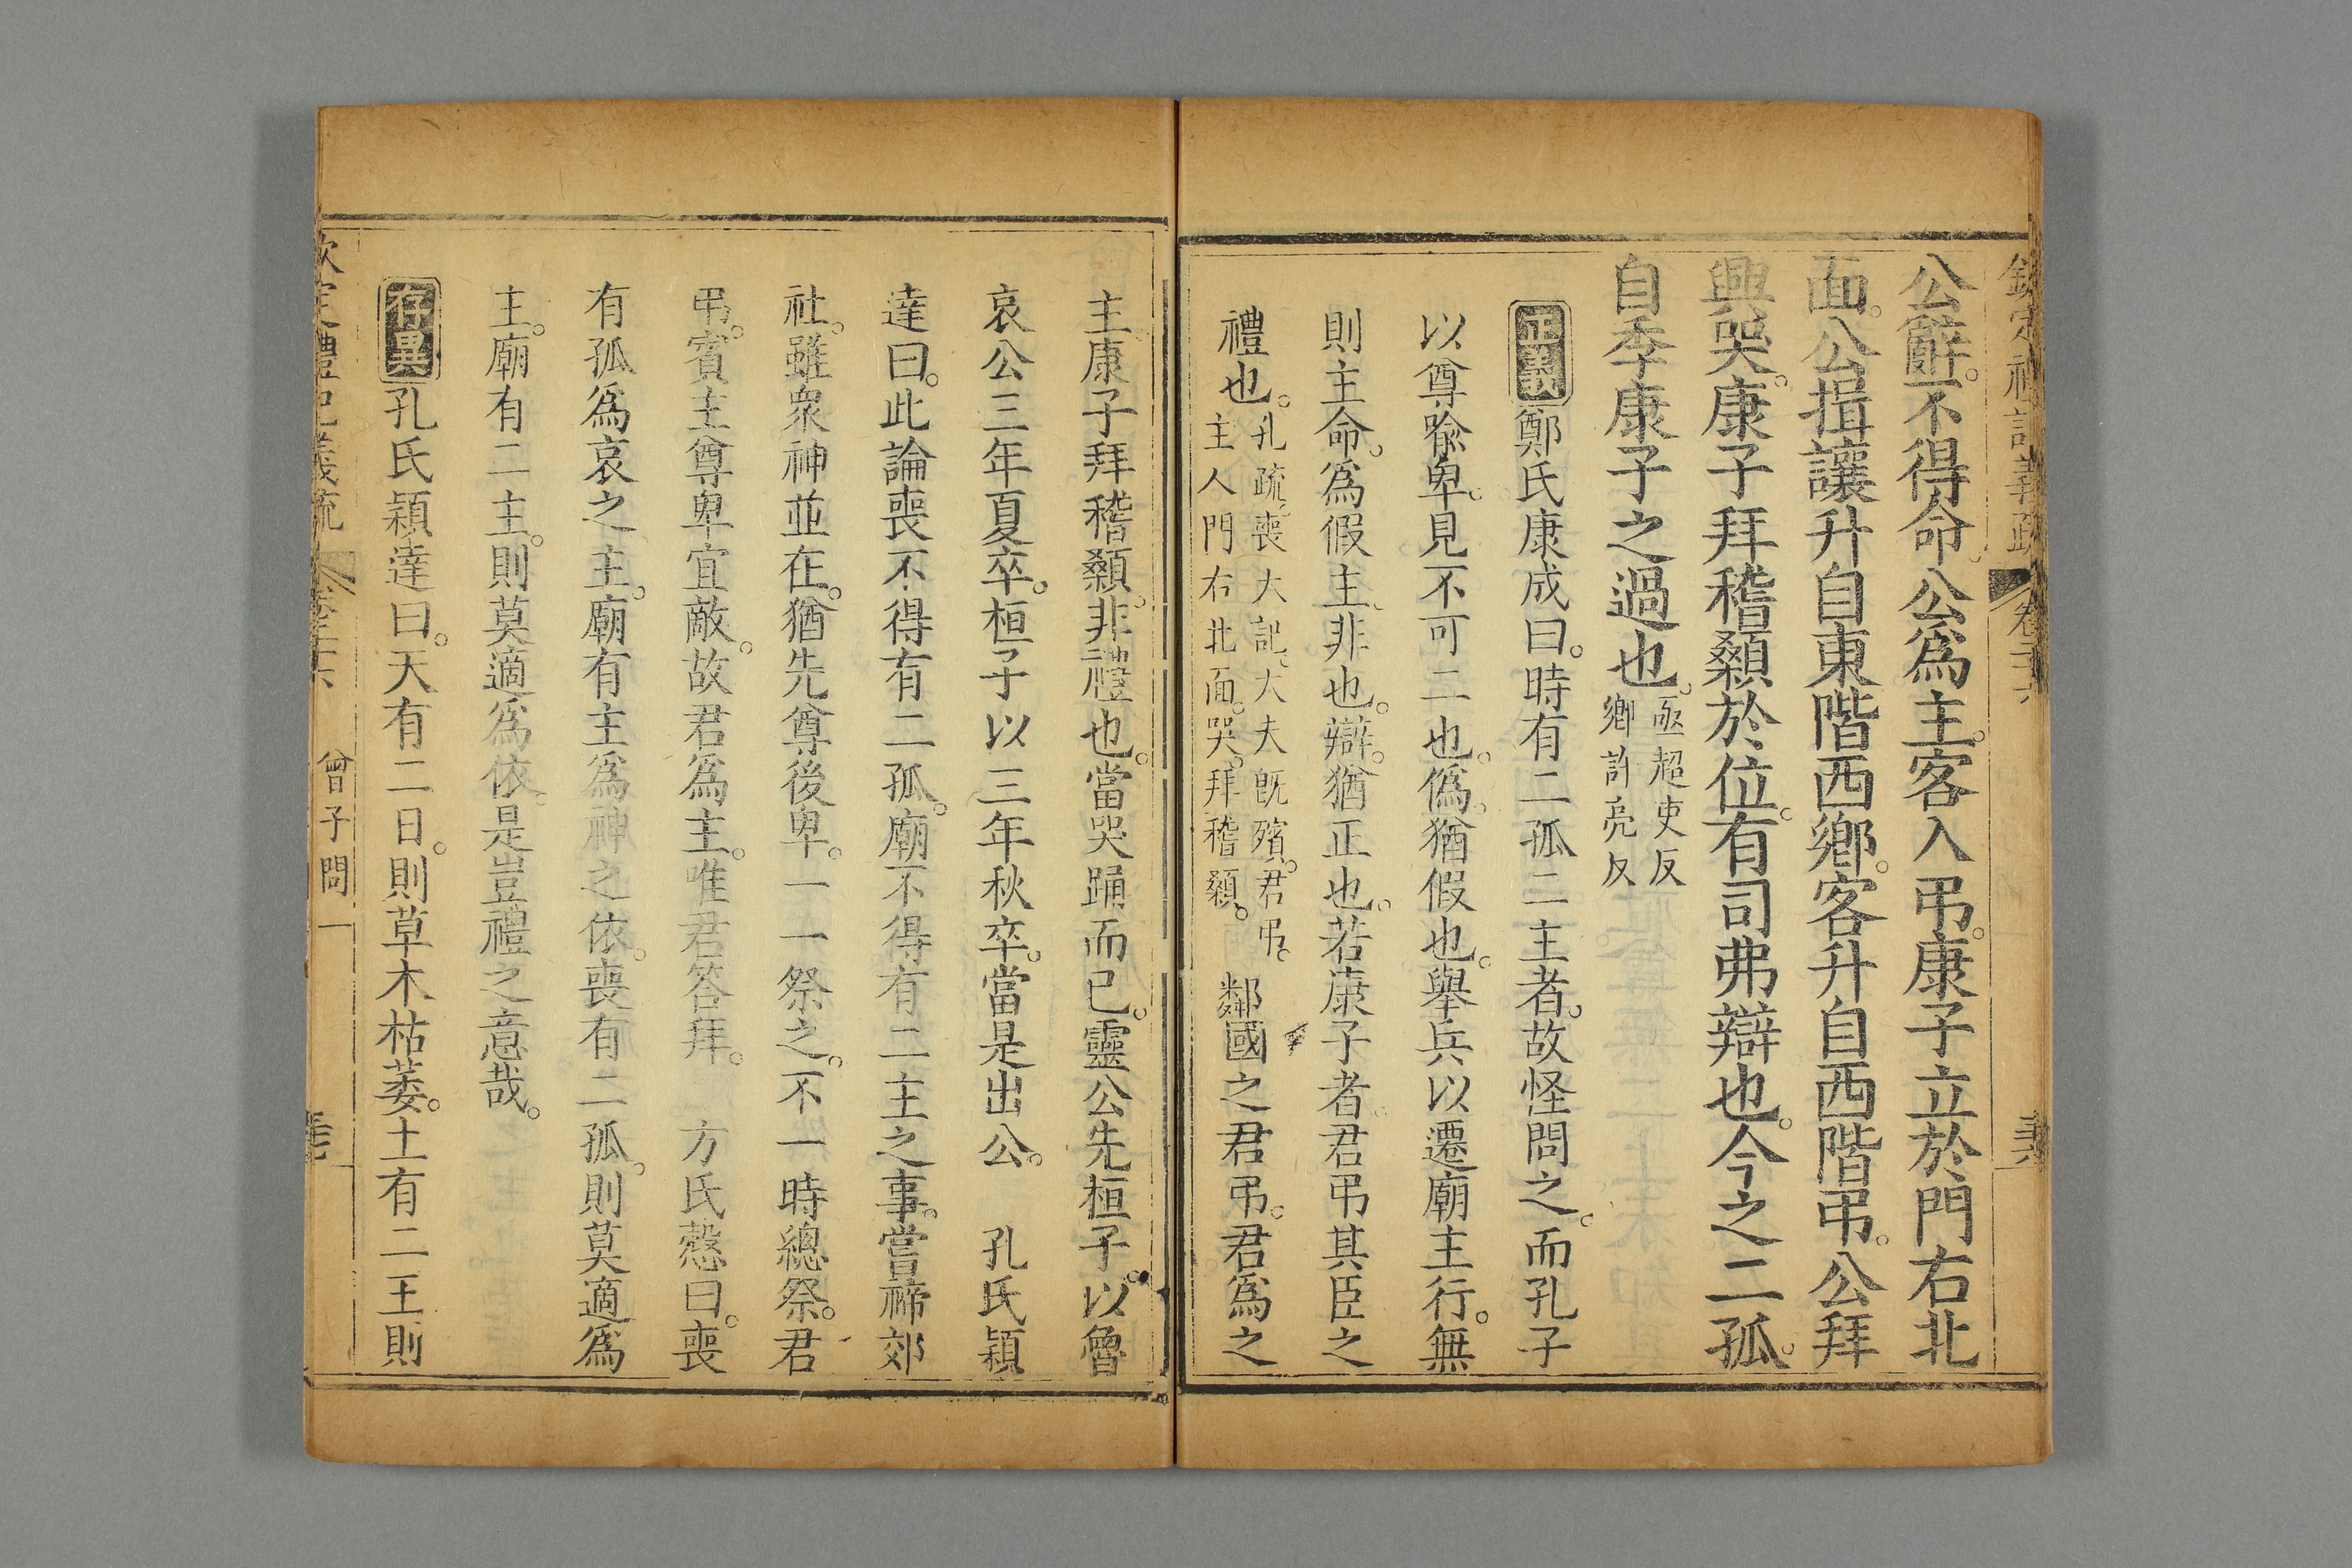 公辭。不得命。公爲主。客入弔。康子立於門右北
面。公揖讓升自東階西鄉。客升自西階弔。公拜
興哭。康子拜稽顙於位。有司弗辯也。今之二孤。
自季康子之過也。亟超吏反
鄉許亮反
正義鄭氏康成曰。時有二孤二主者。故怪問之。而孔子
以尊喩卑。見不可二也。僞。猶假也。舉兵以遷廟主行。無
則主命。爲假主。非也。辯。猶正也。若康子者。君弔其臣之
禮也。孔疏。喪大記。大夫旣殯。君弔。
主人門右北面。哭。拜稽顙。
鄰國之君弔。君爲之
主康子拜稽顙。非禮也。當哭踊而已。靈公先桓子。以魯
哀公三年夏卒。桓子以三年秋卒。當是出公。 孔氏穎
達曰。此論喪不得有二孤。廟不得有二主之事。嘗禘郊
社。雖衆神並在。猶先尊後卑。一一祭之。不一時總祭。君
弔。賓主尊卑宜敵。故君爲主。唯君答拜。 方氏慤曰。喪
有孤爲哀之主。廟有主爲神之依。喪有二孤。則莫適爲
主。廟有二主。則莫適爲依。是豈禮之意哉。
存異孔氏穎達曰。天有二日。則草木枯萎。土有二王則
曾子問